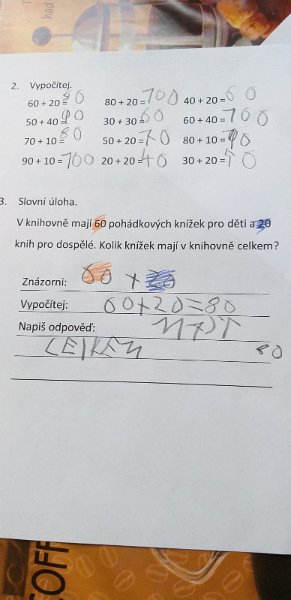 2. Vypočítej.
60 + 20 = 80 80 + 20 = 100 40 + 20 = 60
50 + 40 = 90 30 + 30 = 60 60 + 40 = 100
70 + 10 = 80 50 + 20 = 70 80 + 10 = 90
90 + 10 = 100 20 + 20 = 40 30 + 20 =
3. Slovní úloha.
V knihovně mají 60 pohádkových knížek pro děti a 20
knih pro dospělé. Kolik knížek mají v knihovně celkem?
Znázorni: 60 + 20
Vypočítej: 60+20=80
Napiš odpověď:
CELKEM 80
OFF